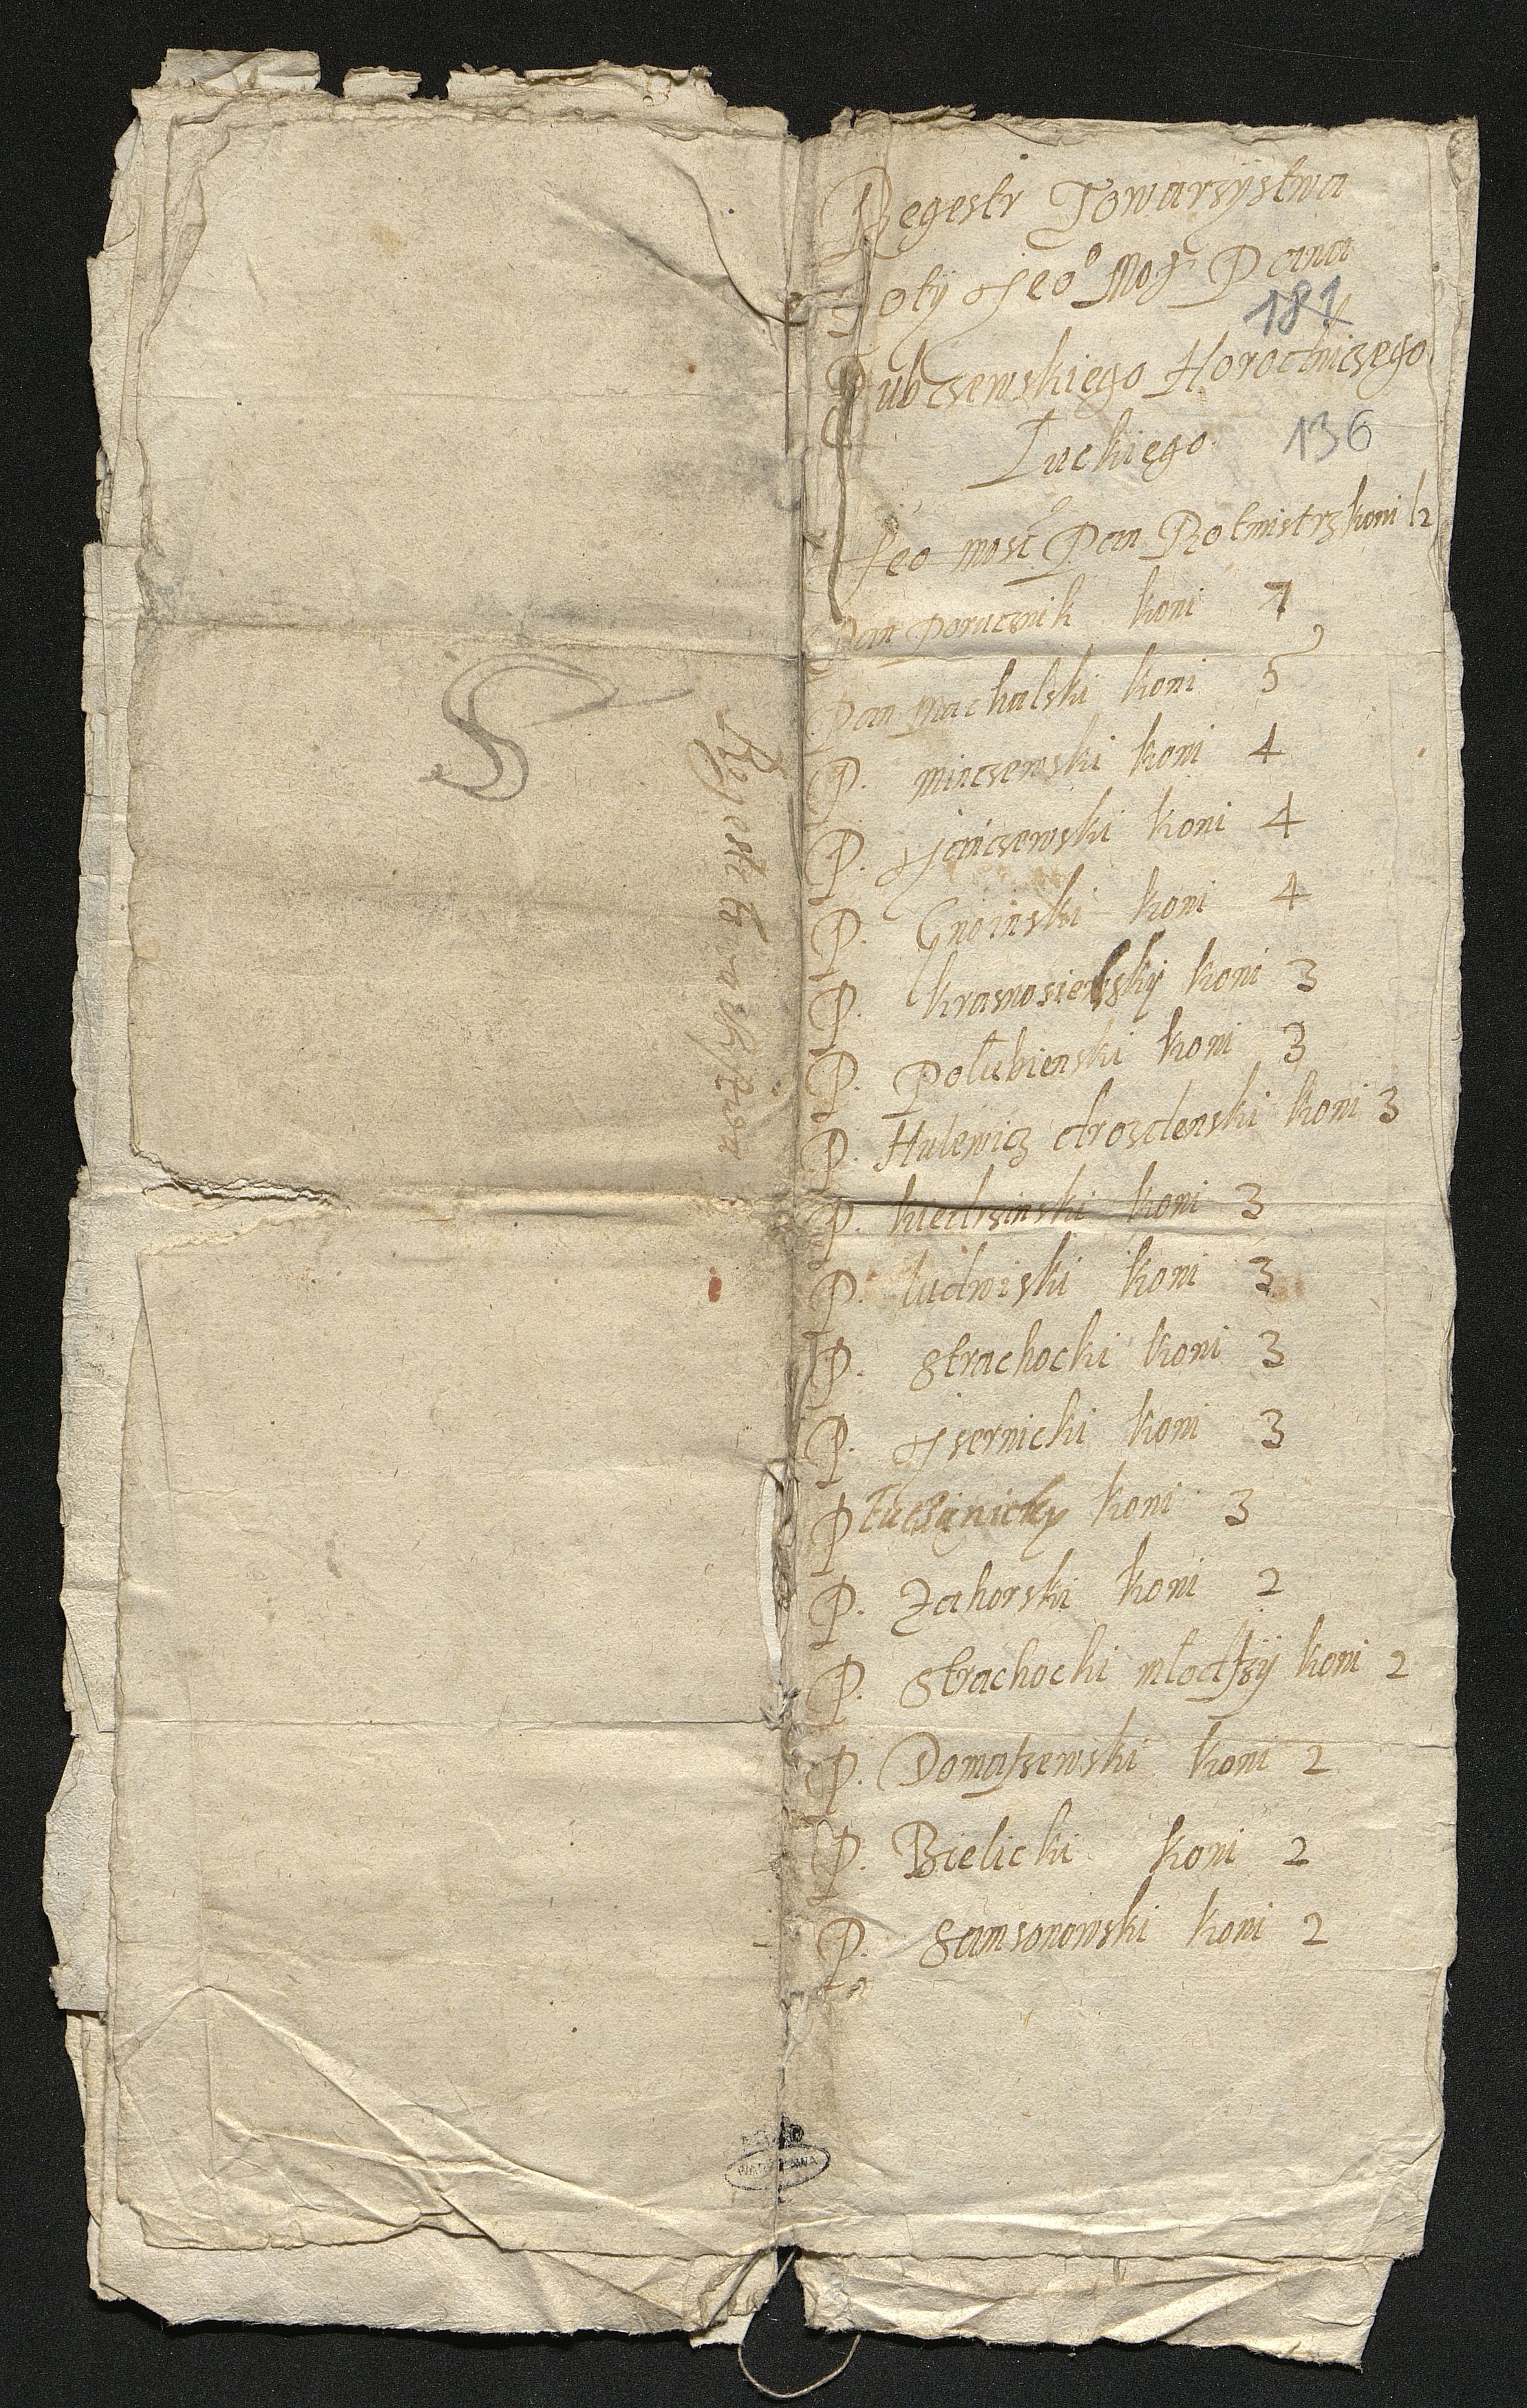 Regestr Towarzÿstwa
Rotÿ Jeo Mosi Pana
181
Dubczewskiego Horodniczego
Łuckiego
136
Jeo mosc Pan Rotmistrz koni 12
Pan Porucznik koni 7
Pan Machalski koni 5
P. minczewski koni 4
P. Janczewski koni 4
P. Gnoinski koni 4
P. krasnosielskÿ koni 3
P. Połubienski koni 3
P. Hulewicz drozdenski koni 3
P. kiedrzinski koni 3
P. ludwiski koni 3
P. Strachocki koni 3
P. Jzernicki koni 3
P koni 3
P. Zahorski koni 2
P. Strachocki młodszÿ koni 2
P. Domaszewski koni 2
P. Bielicki koni 2
P. Samsonowski koni 2
Regestr
WARSZAWA